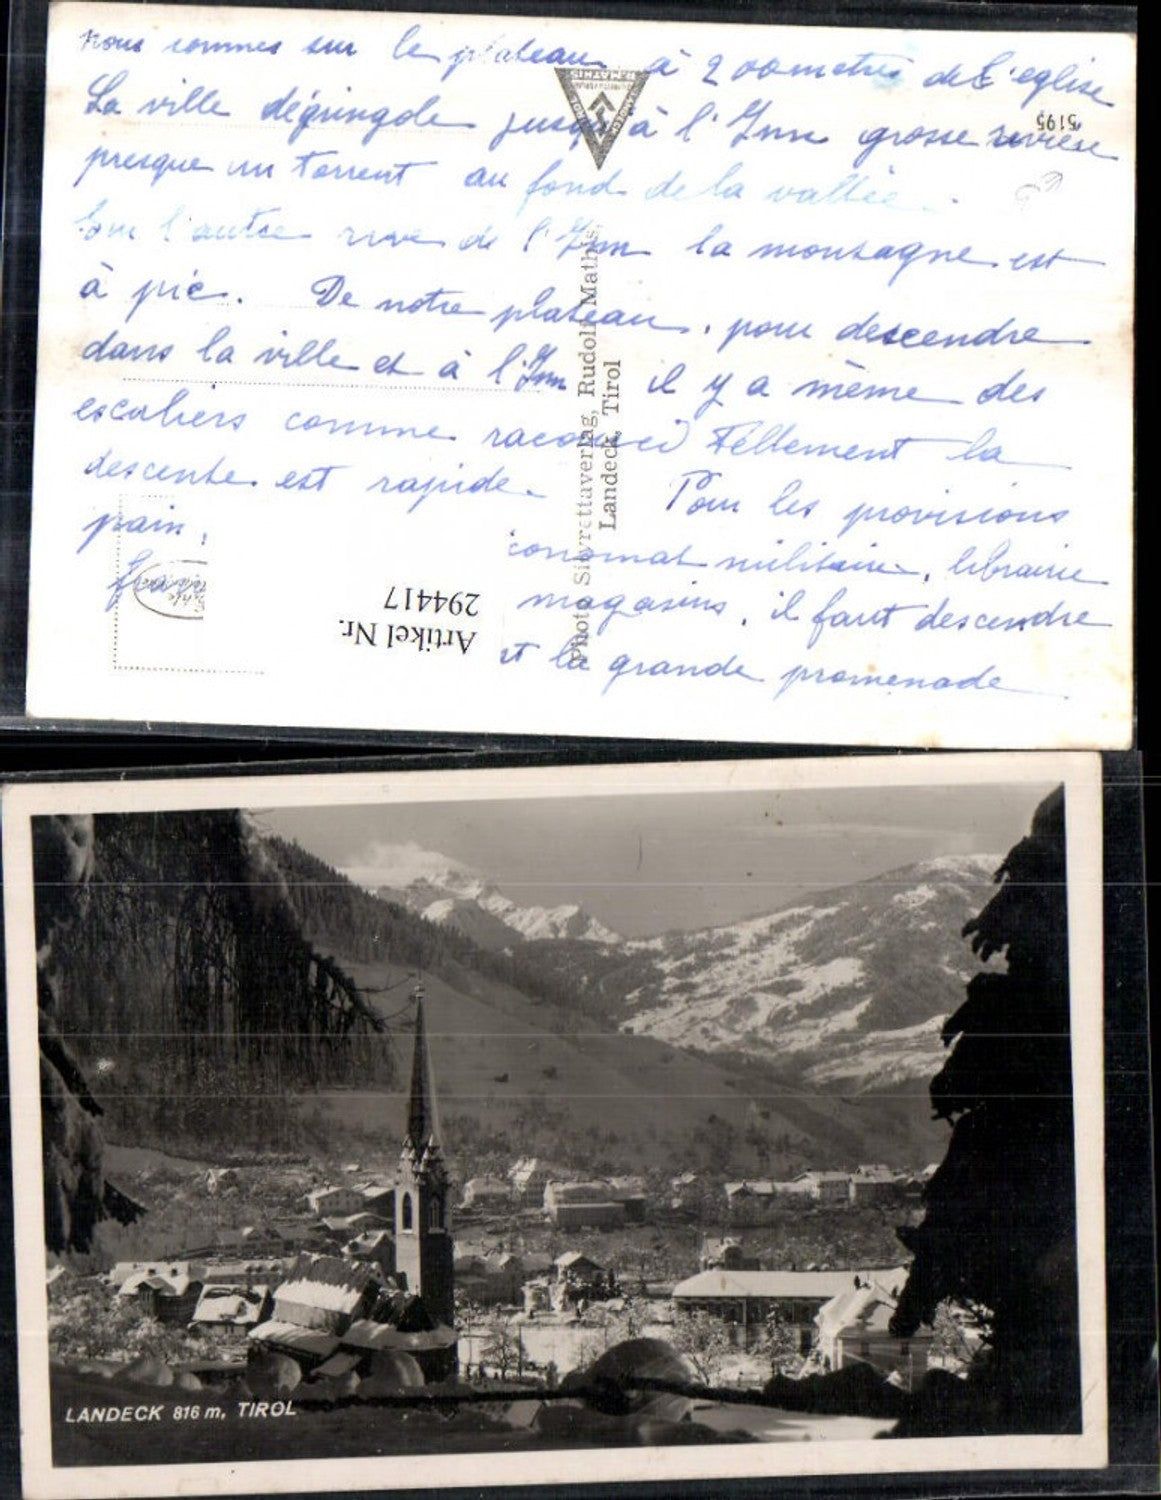 nous sommes sur le plateau à 200 metres de l'eglise
La ville dégringole jusqu'à l'Inn grosse riviere
presque un torrent au fond de la vallée.
Sur l'autre rive de l'Inn la montagne est
à pic. De notre plateau, pour descendre
dans la ville et à l'Inn il y a même des
escaliers comme raccourci tellement la
descente est rapide. Pour les provisions
pain,
conomat militaire, librairie
magasins, il faut descendre
et la grande promenade
5195
Photo Silvrettaverlag, Rudolf Mathis,
Landeck, Tirol
Artikel Nr.
294417
LANDECK 816 m, TIROL